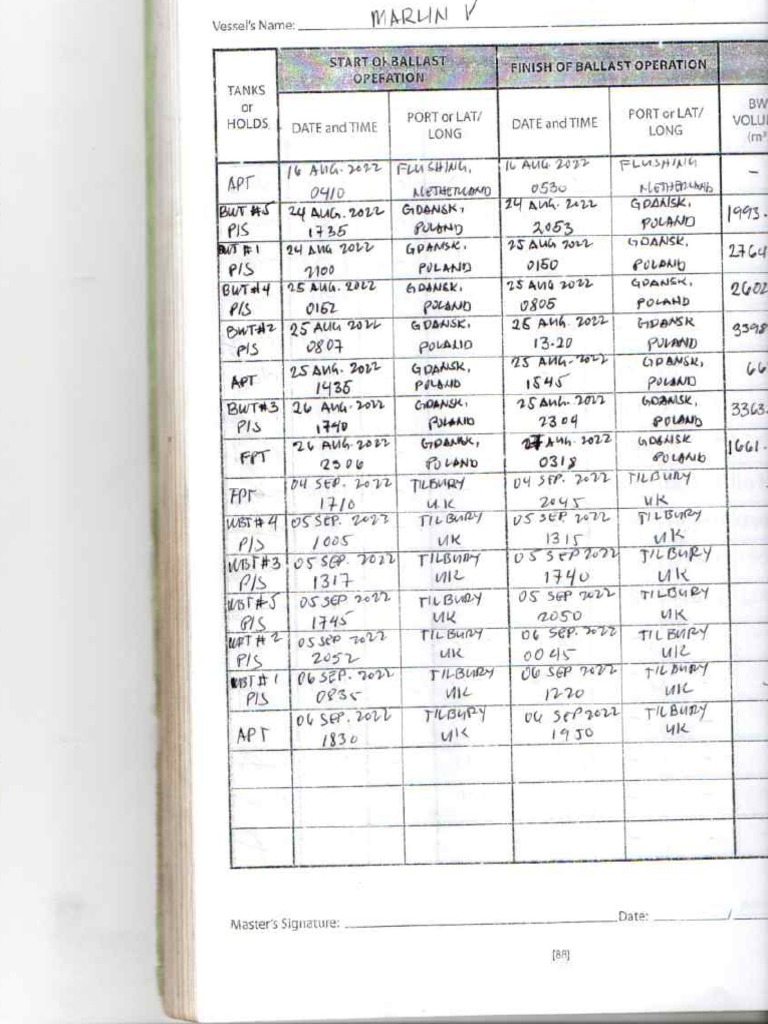 Vessel's Name: MARLIN V
START OF BALLAST OPERATION FINISH OF BALLAST OPERATION
TANKS or HOLDS DATE and TIME PORT or LAT/ LONG DATE and TIME PORT or LAT/ LONG BW VOLU (m³
APT 16 AUG. 2022 FLUSHING, 16 AUG. 2022 FLUSHING -
0410 NETHERLAND 0530 NETHERLAND
BWT #5 24 AUG. 2022 GDANSK, 24 AUG. 2022 GDANSK, 1993.
P/S 1735 POLAND 2053 POLAND
BWT #1 24 AUG 2022 GDANSK, 25 AUG 2022 GDANSK, 2764
P/S 2100 POLAND 0150 POLAND
BWT #4 25 AUG. 2022 GDANSK, 25 AUG 2022 GDANSK, 2602
P/S 0152 POLAND 0805 POLAND
BWT #2 25 AUG 2022 GDANSK, 25 AUG. 2022 GDANSK 3398
P/S 0807 POLAND 13.20 POLAND
APT 25 AUG. 2022 GDANSK, 25 AUG. 2022 GDANSK, 66
1435 POLAND 1545 POLAND
BWT #3 26 AUG. 2022 GDANSK, 25 AUG. 2022 GDANSK, 3363.
P/S 1740 POLAND 2304 POLAND
FPT 26 AUG. 2022 GDANSK, 27 AUG. 2022 GDANSK 1661.
2306 POLAND 0318 POLAND
FPT 04 SEP. 2022 TILBURY 04 SEP. 2022 TILBURY
1710 UK 2045 UK
WBT #4 05 SEP. 2022 TILBURY 05 SEP. 2022 TILBURY
P/S 1005 UK 1315 UK
WBT #3 05 SEP. 2022 TILBURY 05 SEP 2022 TILBURY
P/S 1317 UK 1740 UK
WBT #5 05 SEP 2022 TILBURY 05 SEP 2022 TILBURY
P/S 1745 UK 2050 UK
WBT #2 05 SEP 2022 TILBURY 06 SEP. 2022 TILBURY
P/S 2052 UK 0045 UK
WBT #1 06 SEP. 2022 TILBURY 06 SEP 2022 TILBURY
P/S 0835 UK 1220 UK
APT 06 SEP. 2022 TILBURY 06 SEP 2022 TILBURY
1830 UK 1950 UK
Master's Signature: Date: /
[88]